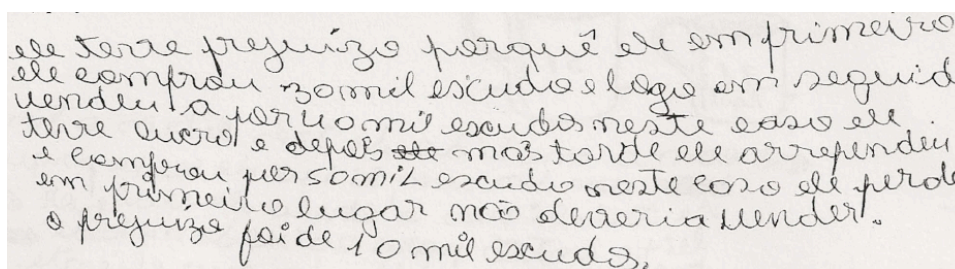 ele terre prejuízo porquê ele em primeiro
ele comprou 30 mil escudo e logo em seguid
vendeu a por 40 mil escudos neste caso ele
terre lucro e depois ele mas tarde ele arrependeu
e comprou por 50 mil escudo neste caso ele perde
em primeiro lugar não deveria vender.
o prejuizo foi de 10 mil escudo.